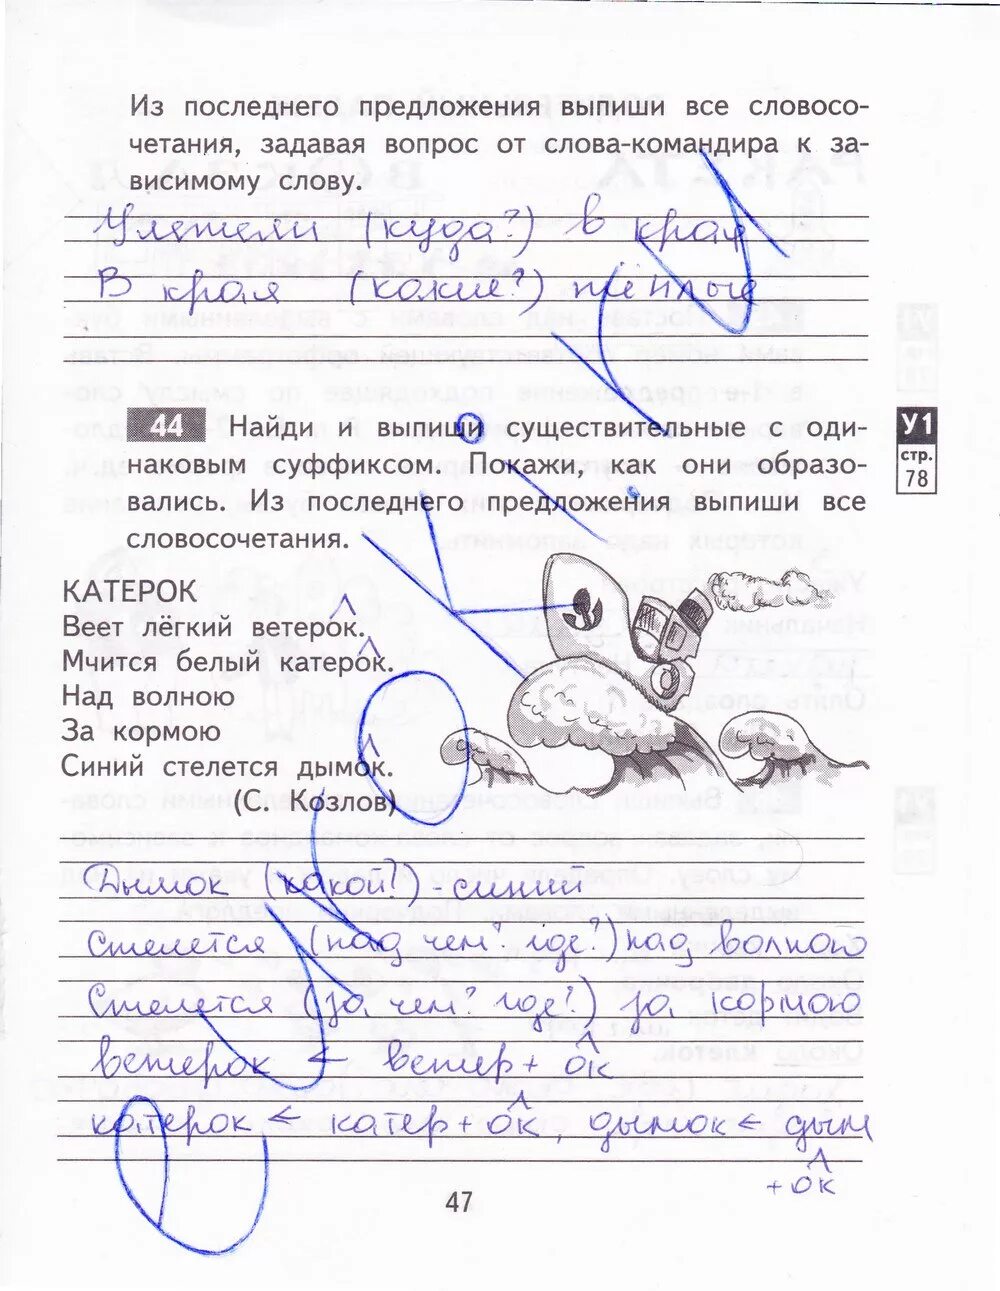 Из последнего предложения выпиши все словосо-
четания, задавая вопрос от слова-командира к за-
висимому слову.
Улетели (куда?) в края
В края (какие?) тёплые
44 Найди и выпиши существительные с оди-
наковым суффиксом. Покажи, как они образо-
вались. Из последнего предложения выпиши все
словосочетания.
У1
стр.
78
КАТЕРОК
Веет лёгкий ветерок.
Мчится белый катерок.
Над волною
За кормою
Синий стелется дымок.
(С. Козлов)
Дымок (какой?) - синий
Стелется (над чем? где?) над волною
Стелется (за чем? где?) за кормою
ветерок ← ветер + ок
катерок ← катер + ок, дымок ← дым
+ ок
47